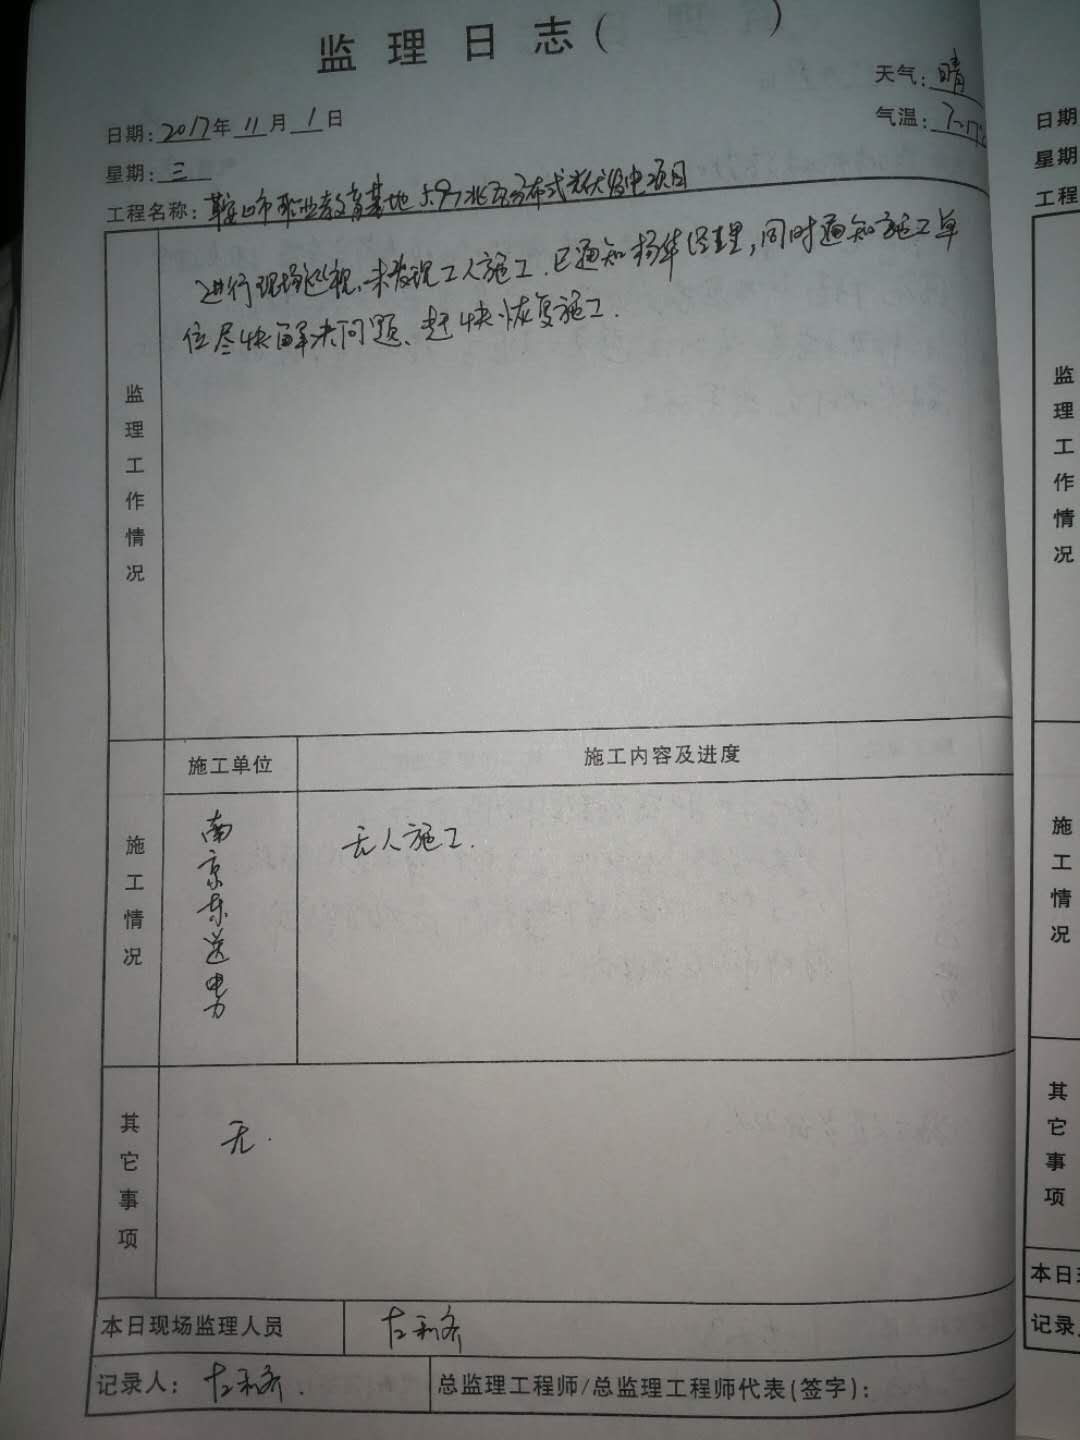 监理日志（ ）
天气：晴
日期：2017年11月1日
气温：7-17℃
星期：三
工程名称：鞍山市职业教育基地5.97兆瓦分布式光伏发电项目
进行现场巡视，未发现工人施工，已通知杨华经理，同时通知施工单
位尽快解决问题、赶快恢复施工．
监理工作情况
施工单位 施工内容及进度
施工情况
南京东送电力
无人施工．
其它事项
无．
本日现场监理人员 左利齐
记录人：左利齐．
总监理工程师/总监理工程师代表(签字)：
日期
星期
工程
监理工作情况
施工情况
其它事项
本日
记录